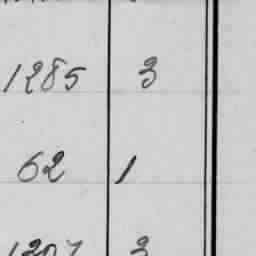 1285 3
62 1
1207 3